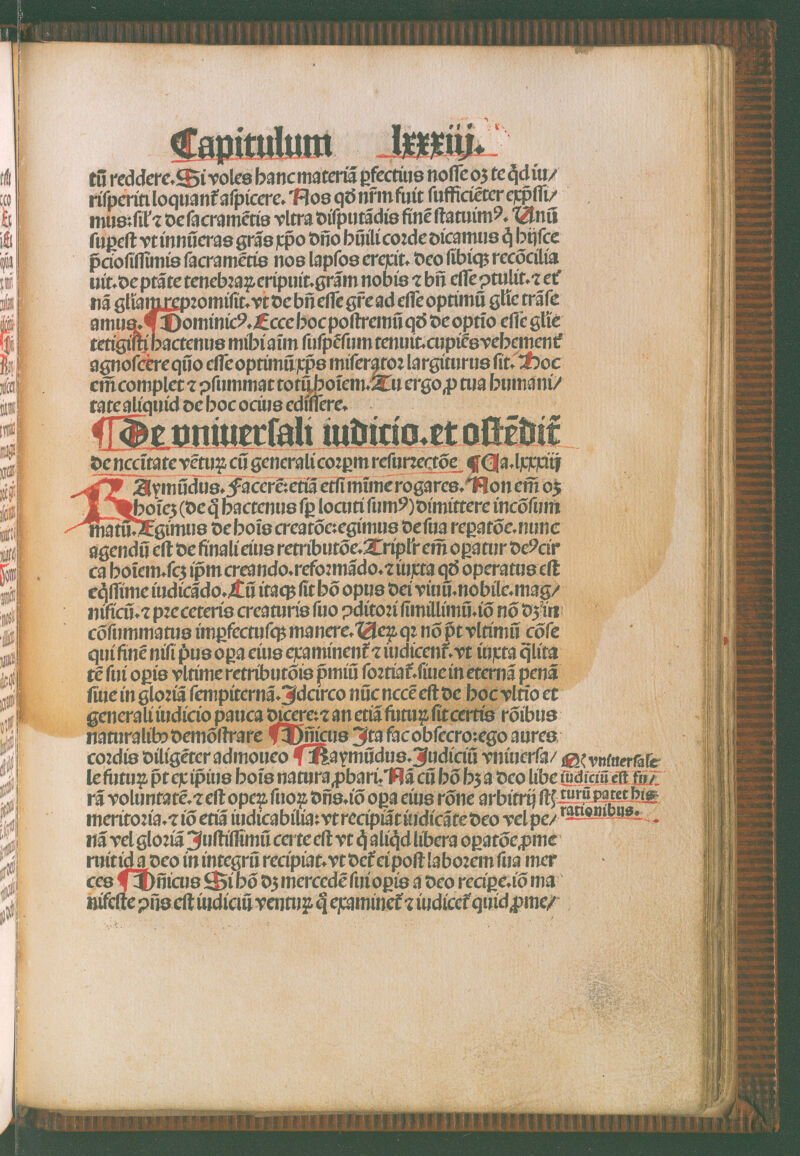 Capitulum lxxxiij.
tū reddere. Si voles hanc materiā ꝑfectius noſſe oꝫ te qd̄ iu⸗
riſperiti loquant᷑ aſpicere. Nos qd̓ nr̄m fuit ſufficiēter exp̄ſſi⸗
mus: ſil̓ ⁊ de ſacramētis vltra diſputādis finē ſtatuimꝰ. Unū
ſuꝑeſt vt innūeras grās xp̄o dn̄o hūili corde dicamus q̇ hijſce
p̄cioſiſſimis ſacramētis nos lapſos erexit. deo ſibiqꝫ recōcilia
uit. de ptāte tenebraꝝ eripuit. grām nobis ⁊ bn̄ eſſe ꝯtulit. ⁊ et᷑
nā gl̄iam repromiſit. vt de bn̄ eſſe gr̄e ad eſſe optimū gl̄ie trāſe
amus. ¶ Dominicꝰ. Ecce hoc poſtremū qd̓ de opti͞o eſſe gl̄ie
tetigiſti hactenus mihi aīm ſuſpēſum tenuit. cupiēs vehement᷑
agnoſcere qūo eſſe optimū xp̄s miſerator largiturus ſit. Hoc
em̄ complet ⁊ ꝯſummat totū hoīem. Tu ergo ꝓ tua humani⸗
tate aliquid de hoc ocius ediſſere.
¶ De vniuerſali iudicio. et oſtēdit᷑
de nccītate vētuꝝ cū generali corꝑm reſurrectōe ¶ Ca. lxxxiij
RAymūdus. Facerē: etiā etſi mīme rogares. Non em̄ oꝫ
hoīeꝫ (de q̇ hactenus ſꝑ locuti ſumꝰ) dimittere incōſum
matū. Egimus de hoīs creatōe: egimus de ſua reꝑatōe. nunc
agendū eſt de finali eius retributōe. Tripl̓r em̄ oꝑatur deꝰ cir
ca hoīem. ſcꝫ ip̄m creando. reformādo. ⁊ iuxta qd̓ operatus eſt
eq̇ſſime iudicādo. Cū itaqꝫ ſit hō opus dei viuū. nobile. mag⸗
nificū. ⁊ pre ceteris creaturis ſuo ꝯditori ſimillimū. iō nō dꝫ in
cōſummatus imꝑfectuſqꝫ manere. Ueꝝ qꝛ nō p̄t vltimū cōſe
qui finē niſi p̓us oꝑa eius examinent᷑ ⁊ iudicent᷑. vt iuxta q̄lita
tē ſui oꝑis vltime retributōis p̄miū ſortiat᷑. ſiue in eternā penā
ſiue in gloriā ſempiternā. Idcirco nūc nccē eſt de hoc vltio et
generali iudicio pauca dicere: ⁊ an etiā futuꝝ ſit certis rōibus
naturalibꝰ demōſtrare ¶ Dn̄icus Ita fac obſecro: ego aures
cordis diligēter admoueo ¶ Raymūdus. Iudiciū vniuerſa⸗
le futuꝝ p̄t ex ip̄ius hoīs natura ꝓbari. Nā cū hō hꝫ a deo libe
rā voluntatē. ⁊ eſt opeꝝ ſuoꝝ dn̄s. iō oꝑa eius rōne arbitrij ſūt
meritoria. ⁊ iō etiā iudicabilia: vt recipiāt iudicāte deo vel pe⸗
nā vel gloriā Iuſtiſſimū certe eſt vt q̇ aliq̇d libera oꝑatōe ꝓme
ruit id a deo in integrū recipiat. vt det᷑ ei poſt laborem ſua mer
ces ¶ Dn̄icus Si hō dꝫ mercedē ſui oꝑis a deo recipe. iō ma
nifeſte ꝯn̄s eſt iudiciū ventuꝝ q̇ examinet᷑ ⁊ iudicet᷑ quid ꝓme⸗
vniuerſale
iudiciū eſt fu⸗
turū patet his
rationibus.